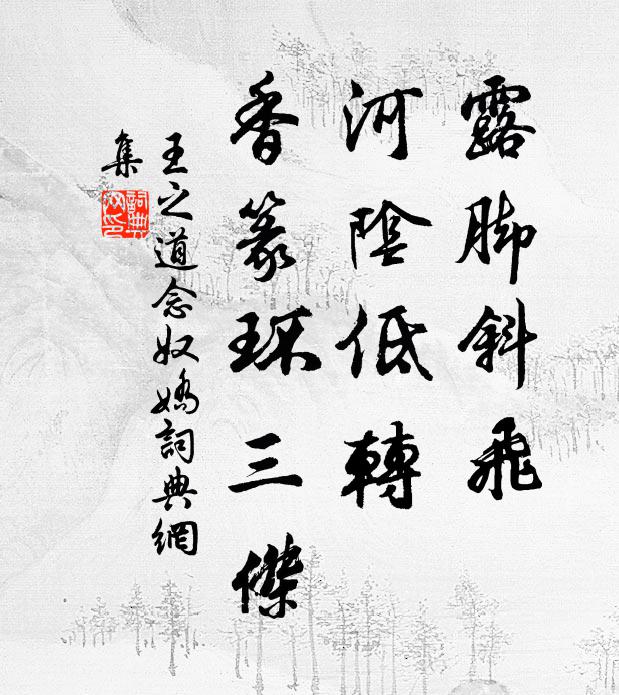 露脚斜飛
河陰低轉
香篆環三傑
王之道念奴嬌詞典網
集
詞典網印